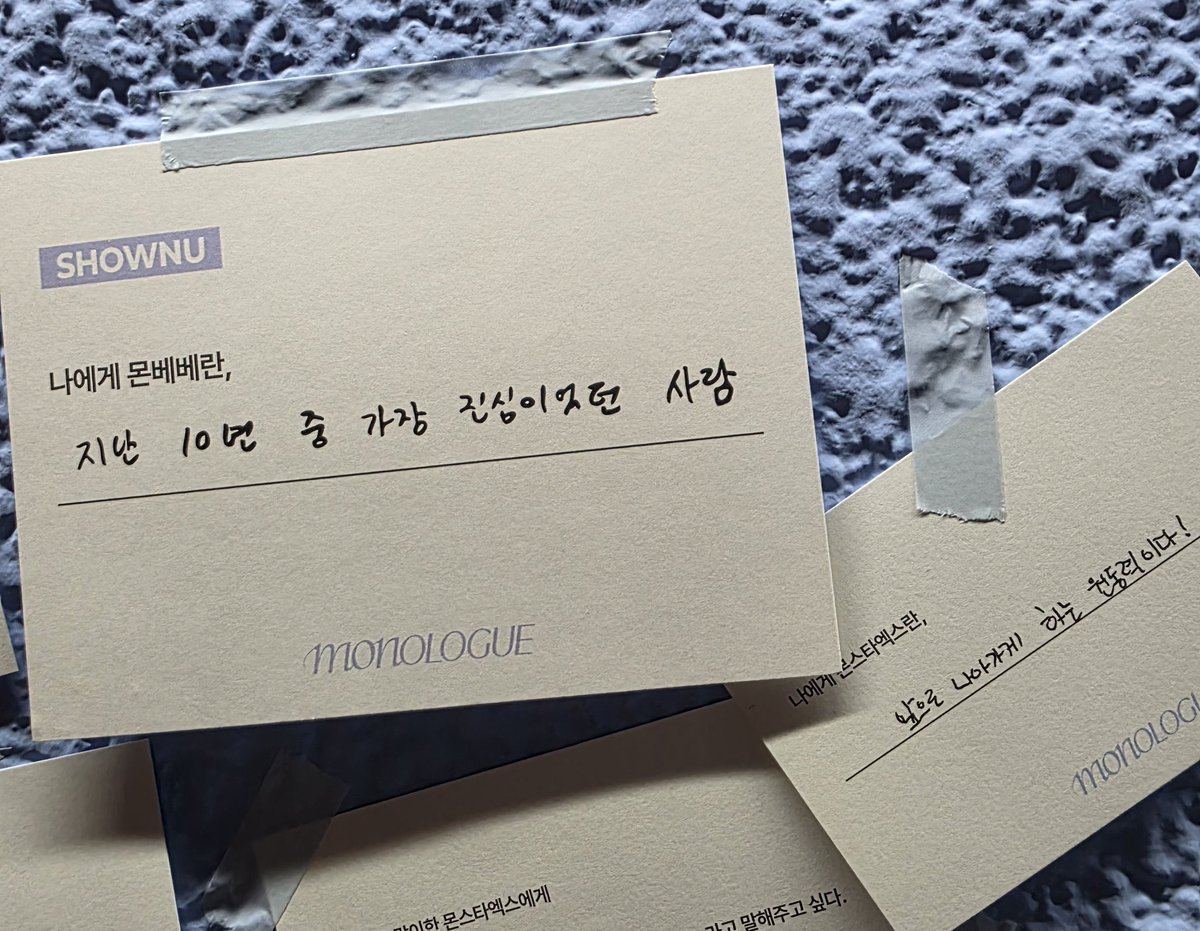 SHOWNU
나에게 몬베베란,
지난 10년 중 가장 진심이었던 사람
MONOLOGUE
나에게 몬스타엑스란,
앞으로 나아가게 하는 원동력이다!
MONOLOGU
몬스타엑스에게
라고 말해주고 싶다.